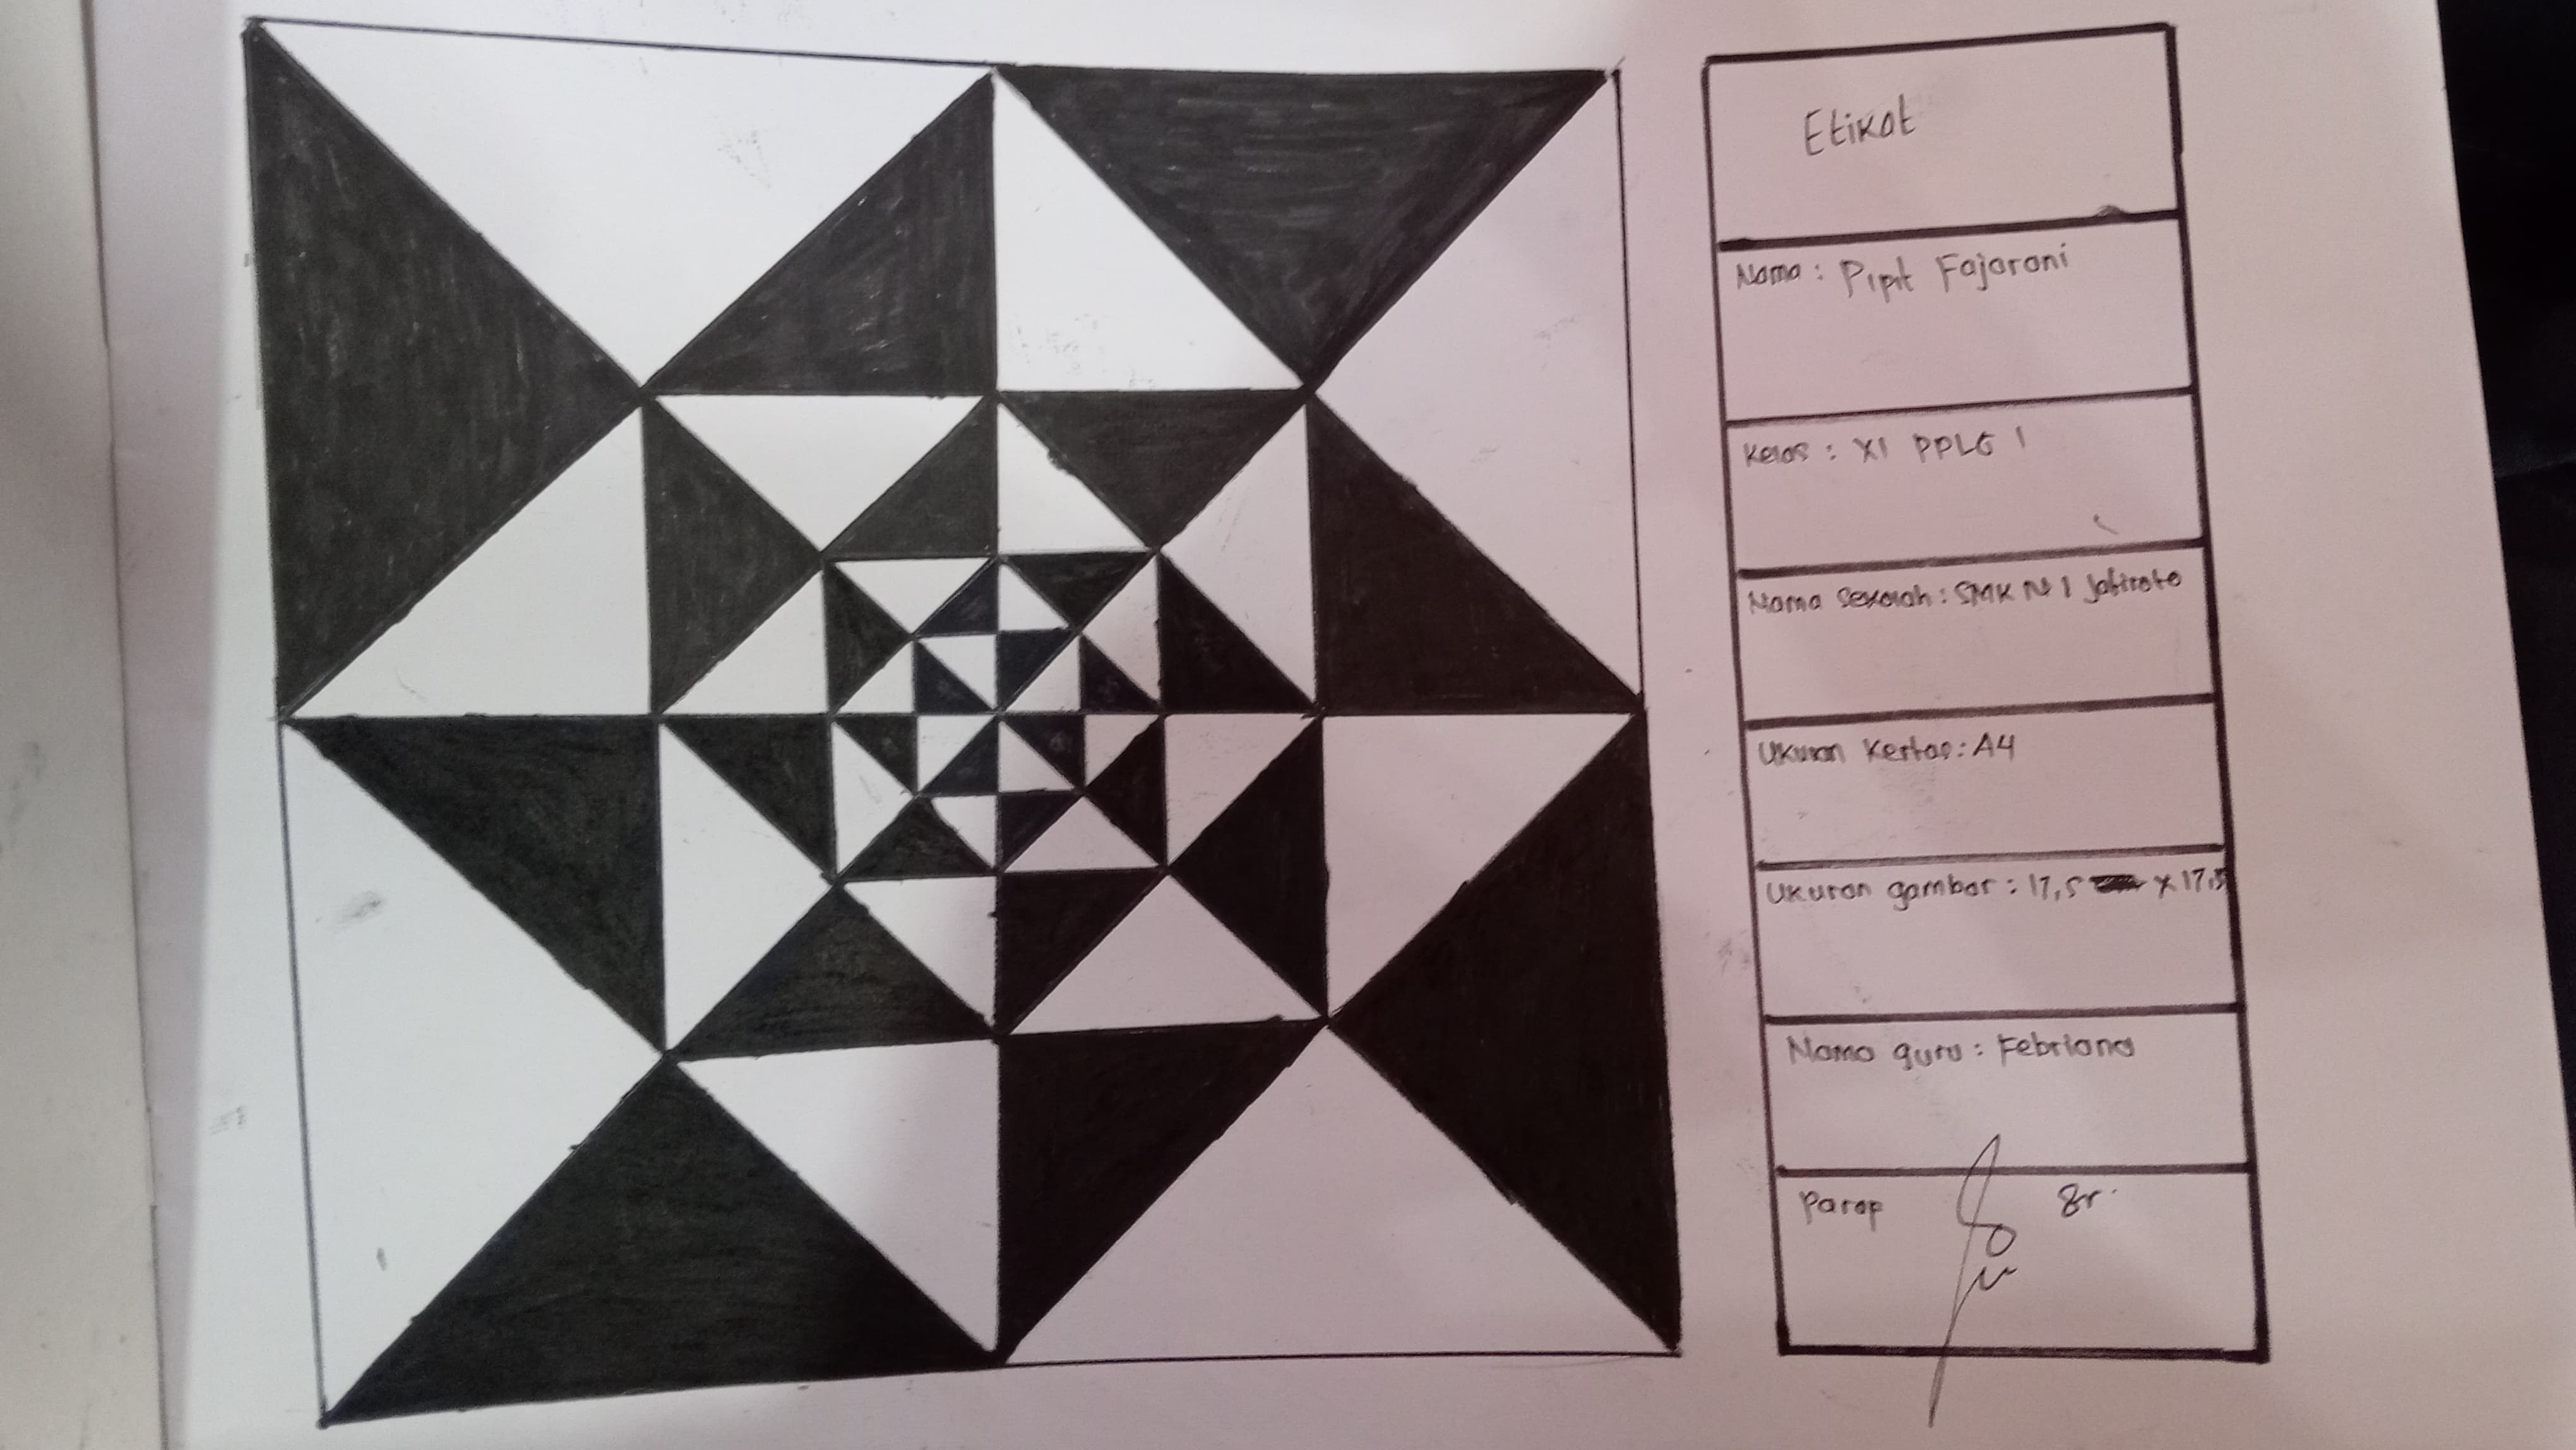 Etikat
Nama : Pipit Fajarani
Kelas : XI PPLG 1
Nama Sekolah : SMK N 1 Jatiroto
Ukuran Kertas : A4
Ukuran gambar : 17,5 x 17,5
Nama guru : Febriana
Parap